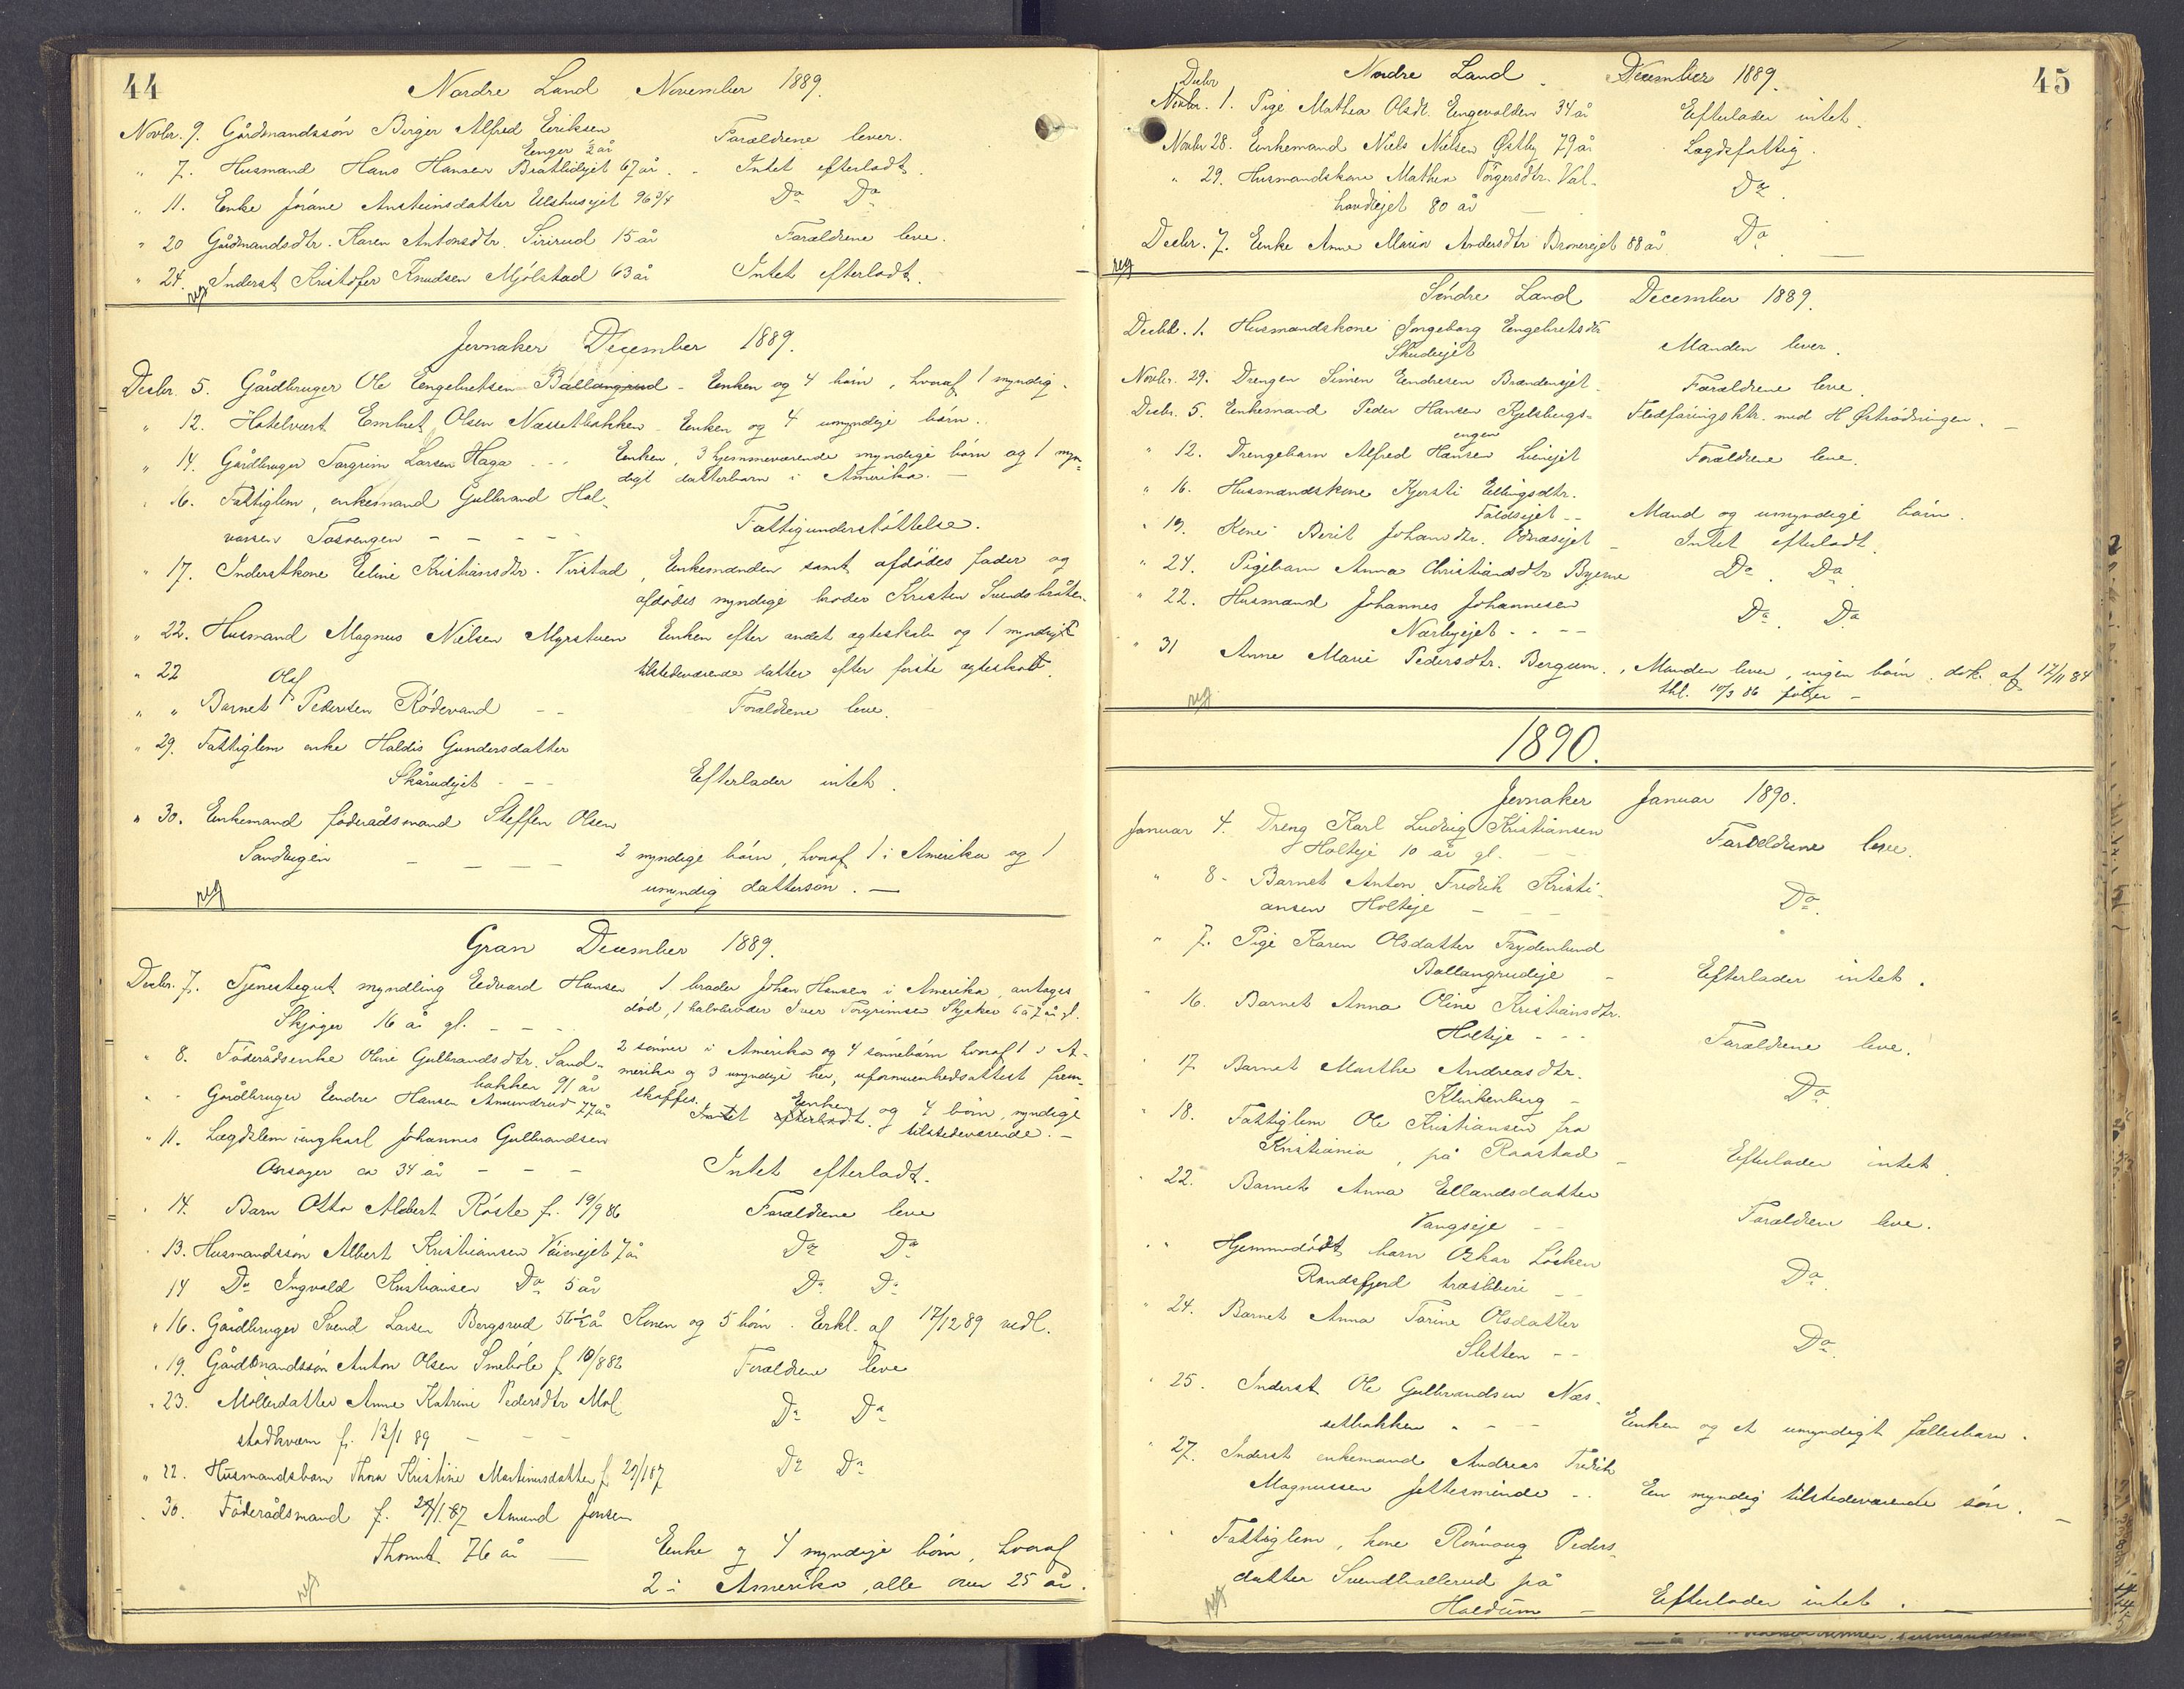 44
Nordre Land November 1889.
Novbr. 9. Gårdmandssön Birger Alfred Eeriksen
Eenger ½ år
Forældrene lever.
" 7. Husmand Hans Hansen Bratlidejet 67 år. - Intet efterladt.
" 11. Enke Jöráne Ansteinsdatter Ulshusejet 96 3/4 Do Do
" 20 Gårdmandsdtr. Karen Antonsdtr. Sirirud 15 år Forældrene leve.
" 24. Inderst Kristofer Knudsen Mjölstad 63 år Intet efterladt.
reg
Jevnaker December 1889.
Decbr. 5. Gårdbruger Ole Engebretsen Ballangrud - Enken og 4 börn, hvoraf 1 myndig.
" 12. Hotelvært Embret Olsen Næssetbakken - Enken og 4 umyndige börn.
" 14. Gårdbruger Torgrim Larsen Haga - - - Enken, 3 hjemmeværende myndige börn og 1 myn-
digt datterbarn i Amerika. -
" 16. Fattiglem, enkemand Gulbrand Hal-
vorsen Tosoengen - - - - Fattigunderstöttelse.
" 17. Inderstkone Eeline Kristiansdtr. Virstad, Enkemanden samt afdödes fader og
afdödes myndige broder Kristen Svendsbråten.
" 22. Husmand Magnus Nielsen Myrstuen Enken efter andet ægteskab og 1 myndigt
" 22 tilstedeværende datter efter förste ægteskab.
Olef
" " Barnet Pedersen Rödevand - - Forældrene leve.
" 29. Fattiglem enke Haldis Gundersdatter
Skårudejet - - Efterlader intet.
" 30. Enkemand föderådsmand Steffen Olsen
Sandvigen - - - - 2 myndige börn, hvoraf 1 i Amerika og 1
umyndig dattersön. -
reg
Gran December 1889.
Decbr. 7. Tjenestegut myndling Eedvard Hansen 1 broder Johan Hansen i Amerika, antages
Skjager 16 år gl. - - - död, 1 halvbroder Iver Torgrimsen Skjaker 6 à 7 år gl.
" 8. Föderådsenke Oline Gulbrandsdtr. Sand- 2 sönner i Amerika og 4 sönnebörn hvoraf 1 i A-
bakken 91 år merika og 3 umyndige her, uformuenhedsattest frem-
skaffes.
" " Gårdbruger Eendre Hansen Amundrud 77 år Intet efterladt. Enken og 4 börn, myndige
tilstedeværende. -
" 11. Lægdslem ungkarl Johannes Gulbrandsen
Aasager ca 34 år - - - Intet efterladt.
" 14. Barn Otto Albert Röste f. 19/9 86 Forældrene leve
" 13. Husmandssön Albert Kristiansen Väienejet 7 år Do Do
14 Do Ingvald Kristiansen Do 5 år Do Do
" 16. Gårdbruger Svend Larsen Bergsrud 56½ år Konen og 5 börn. Erkl. af 17/12 89 vedl.
" 19. Gårdmandssön Anton Olsen Smeböle f. 18/8 82 Forældrene leve
" 23. Möllerdatter Anne Katrine Pedersdtr Mol
stadkværn f. 13/1 89 - - - Do Do
" 22. Husmandsbarn Thora Kristine Martinusdatter f. 29/1 87 Do Do
" 30. Föderådsmand f. 29/1.87 Amund Jonsen
Thomt 76 år - Enke og 4 myndige börn, hvoraf
2 i Amerika, alle over 25 år.
reg
45
Nordre Land. December 1889.
Decbr
Novbr. 1. Pige Mathea Olsdt. Eengevolden 34 år Efterlader intet.
Novbr 28. Enkemand Niels Nielsen Östby 79 år Lægdsfattig.
" 29. Husmandskone Mathea Torgersdtr. Val-
hovdejet 80 år - Do.
Decbr. 7. Eenke Anne Maria Andersdtr Bronerejet 88 år Do. -
reg
Söndre Land December 1889.
Decbr. 1. Husmandskone Ingeborg Eengebretsdtr
Skudejet Manden lever.
Novbr. 29. Drengen Simen Eendresen Brændenejet. Forældrene leve
Decbr. 5. Eenkemand Peder Hansen Kjelsbergs- Fledföringsktr. med H Östrodningen. -
engen
" 12. Drengebarn Alfred Hansen Lienejet Forældrene leve.
" 16. Husmandskone Kjersti Eellingsdtr.
Faldsejet - - Mand og umyndige börn.
" 19. Kone Berit Johansdtr. Odnæsejet - Intet efterladt.
" 24. Pigebarn Anna Christiansdtr Byerne Do. Do
" 22. Husmand Johannes Johannesen
Nærbyejet - - - - Do. Do
" 31 Anne Marie Pedersdtr. Bergum., Manden lever, ingen börn. dok. af 17/11 84
thl. 10/3 86 fölger -
reg
1890.
Jevnaker Januar 1890.
Januar 4. Dreng Karl Ludvig Kristiansen
Holteje 10 år gl. - - Forældrene leve.
" 8 - Barnet Anton Fredrik Kristi-
ansen Holteje - - - Do.
" 7. Pige Karen Olsdatter Frydenlund
Ballangrudeje - Efterlader intet.
" 16. Barnet Anna Oline Kristiansdtr.
Holteje - - - Forældrene leve.
" 17 Barnet Marthe Andreasdtr.
Klinkenberg - Do.
" 18. Fattiglem Ole Kristiansen fra
Kristiania, på Raastad - Efterlader intet.
" 22. Barnet Anna Eellandsdatter
Vangseje - - Forældrene leve.
" " Hjemmedödt barn Oskar Lösken
Randsfjord træsliberi - - Do.
" 24. Barnet Anna Tarine Olsdatter
Sletten - - Do.
" 25. Inderst Ole Gulbrandsen Næs-
setbakken - - - - Enken og et umyndigt fællesbarn.
" 27. Inderst enkemand Andreas Fredrik
Magnussen Jettesminde - . Een myndig tilstedeværende sön. -
" " Fattiglem, kone Rönnaug Peders-
datter Svendhallerud på
Haldum - Efterlader intet. -
reg